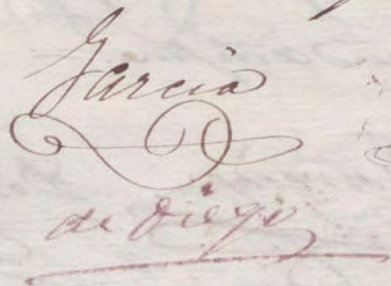 Garcia
de Diego